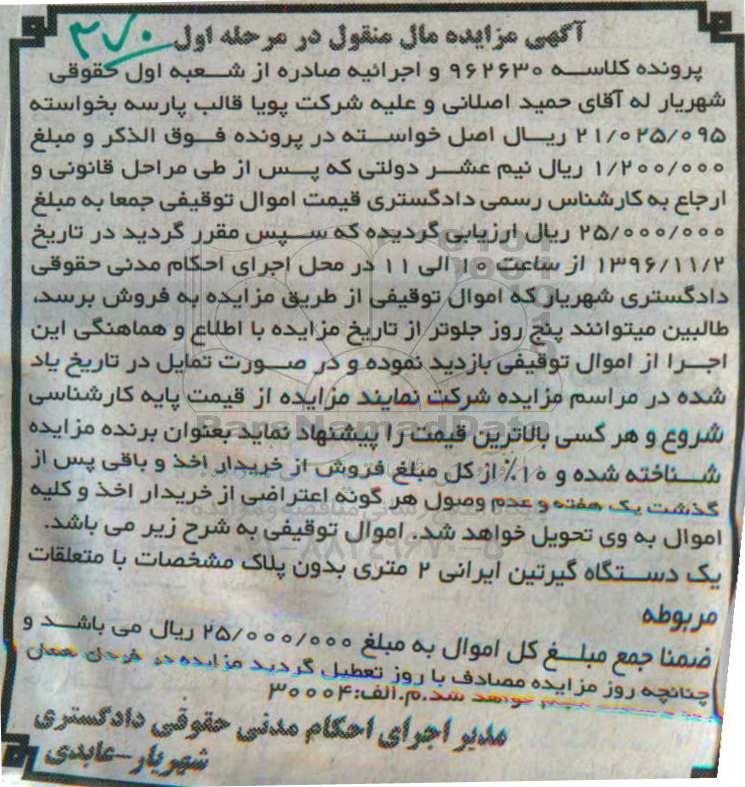 ۳۷۰
آگهی مزایده مال منقول در مرحله اول
پرونده کلاسه ۹۶۲۶۳۰ و اجرائیه صادره از شعبه اول حقوقی
شهریار له آقای حمید اصلانی و علیه شرکت پویا قالب پارسه بخواسته
۲۱/۰۲۵/۰۹۵ ریال اصل خواسته در پرونده فوق الذکر و مبلغ
۱/۲۰۰/۰۰۰ ریال نیم عشر دولتی که پس از طی مراحل قانونی و
ارجاع به کارشناس رسمی دادگستری قیمت اموال توقیفی جمعا به مبلغ
۲۵/۰۰۰/۰۰۰ ریال ارزیابی گردیده که سپس مقرر گردید در تاریخ
۱۳۹۶/۱۱/۲ از ساعت ۱۰ الی ۱۱ در محل اجرای احکام مدنی حقوقی
دادگستری شهریار که اموال توقیفی از طریق مزایده به فروش برسد،
طالبین میتوانند پنج روز جلوتر از تاریخ مزایده با اطلاع و هماهنگی این
اجرا از اموال توقیفی بازدید نموده و در صورت تمایل در تاریخ یاد
شده در مراسم مزایده شرکت نمایند مزایده از قیمت پایه کارشناسی
شروع و هر کسی بالاترین قیمت را پیشنهاد نماید بعنوان برنده مزایده
شناخته شده و ۱۰٪ از کل مبلغ فروش از خریدار اخذ و باقی پس از
گذشت یک هفته و عدم وصول هر گونه اعتراضی از خریدار اخذ و کلیه
اموال به وی تحویل خواهد شد. اموال توقیفی به شرح زیر می باشد.
یک دستگاه گیرتین ایرانی ۲ متری بدون پلاک مشخصات با متعلقات
مربوطه
ضمنا جمع مبلغ کل اموال به مبلغ ۲۵/۰۰۰/۰۰۰ ریال می باشد و
چنانچه روز مزایده مصادف با روز تعطیل گردید مزایده در فردای همان
خواهد شد.م.الف:۳۰۰۰۴
مدیر اجرای احکام مدنی حقوقی دادگستری
شهریار-عابدی
ParsNamadData